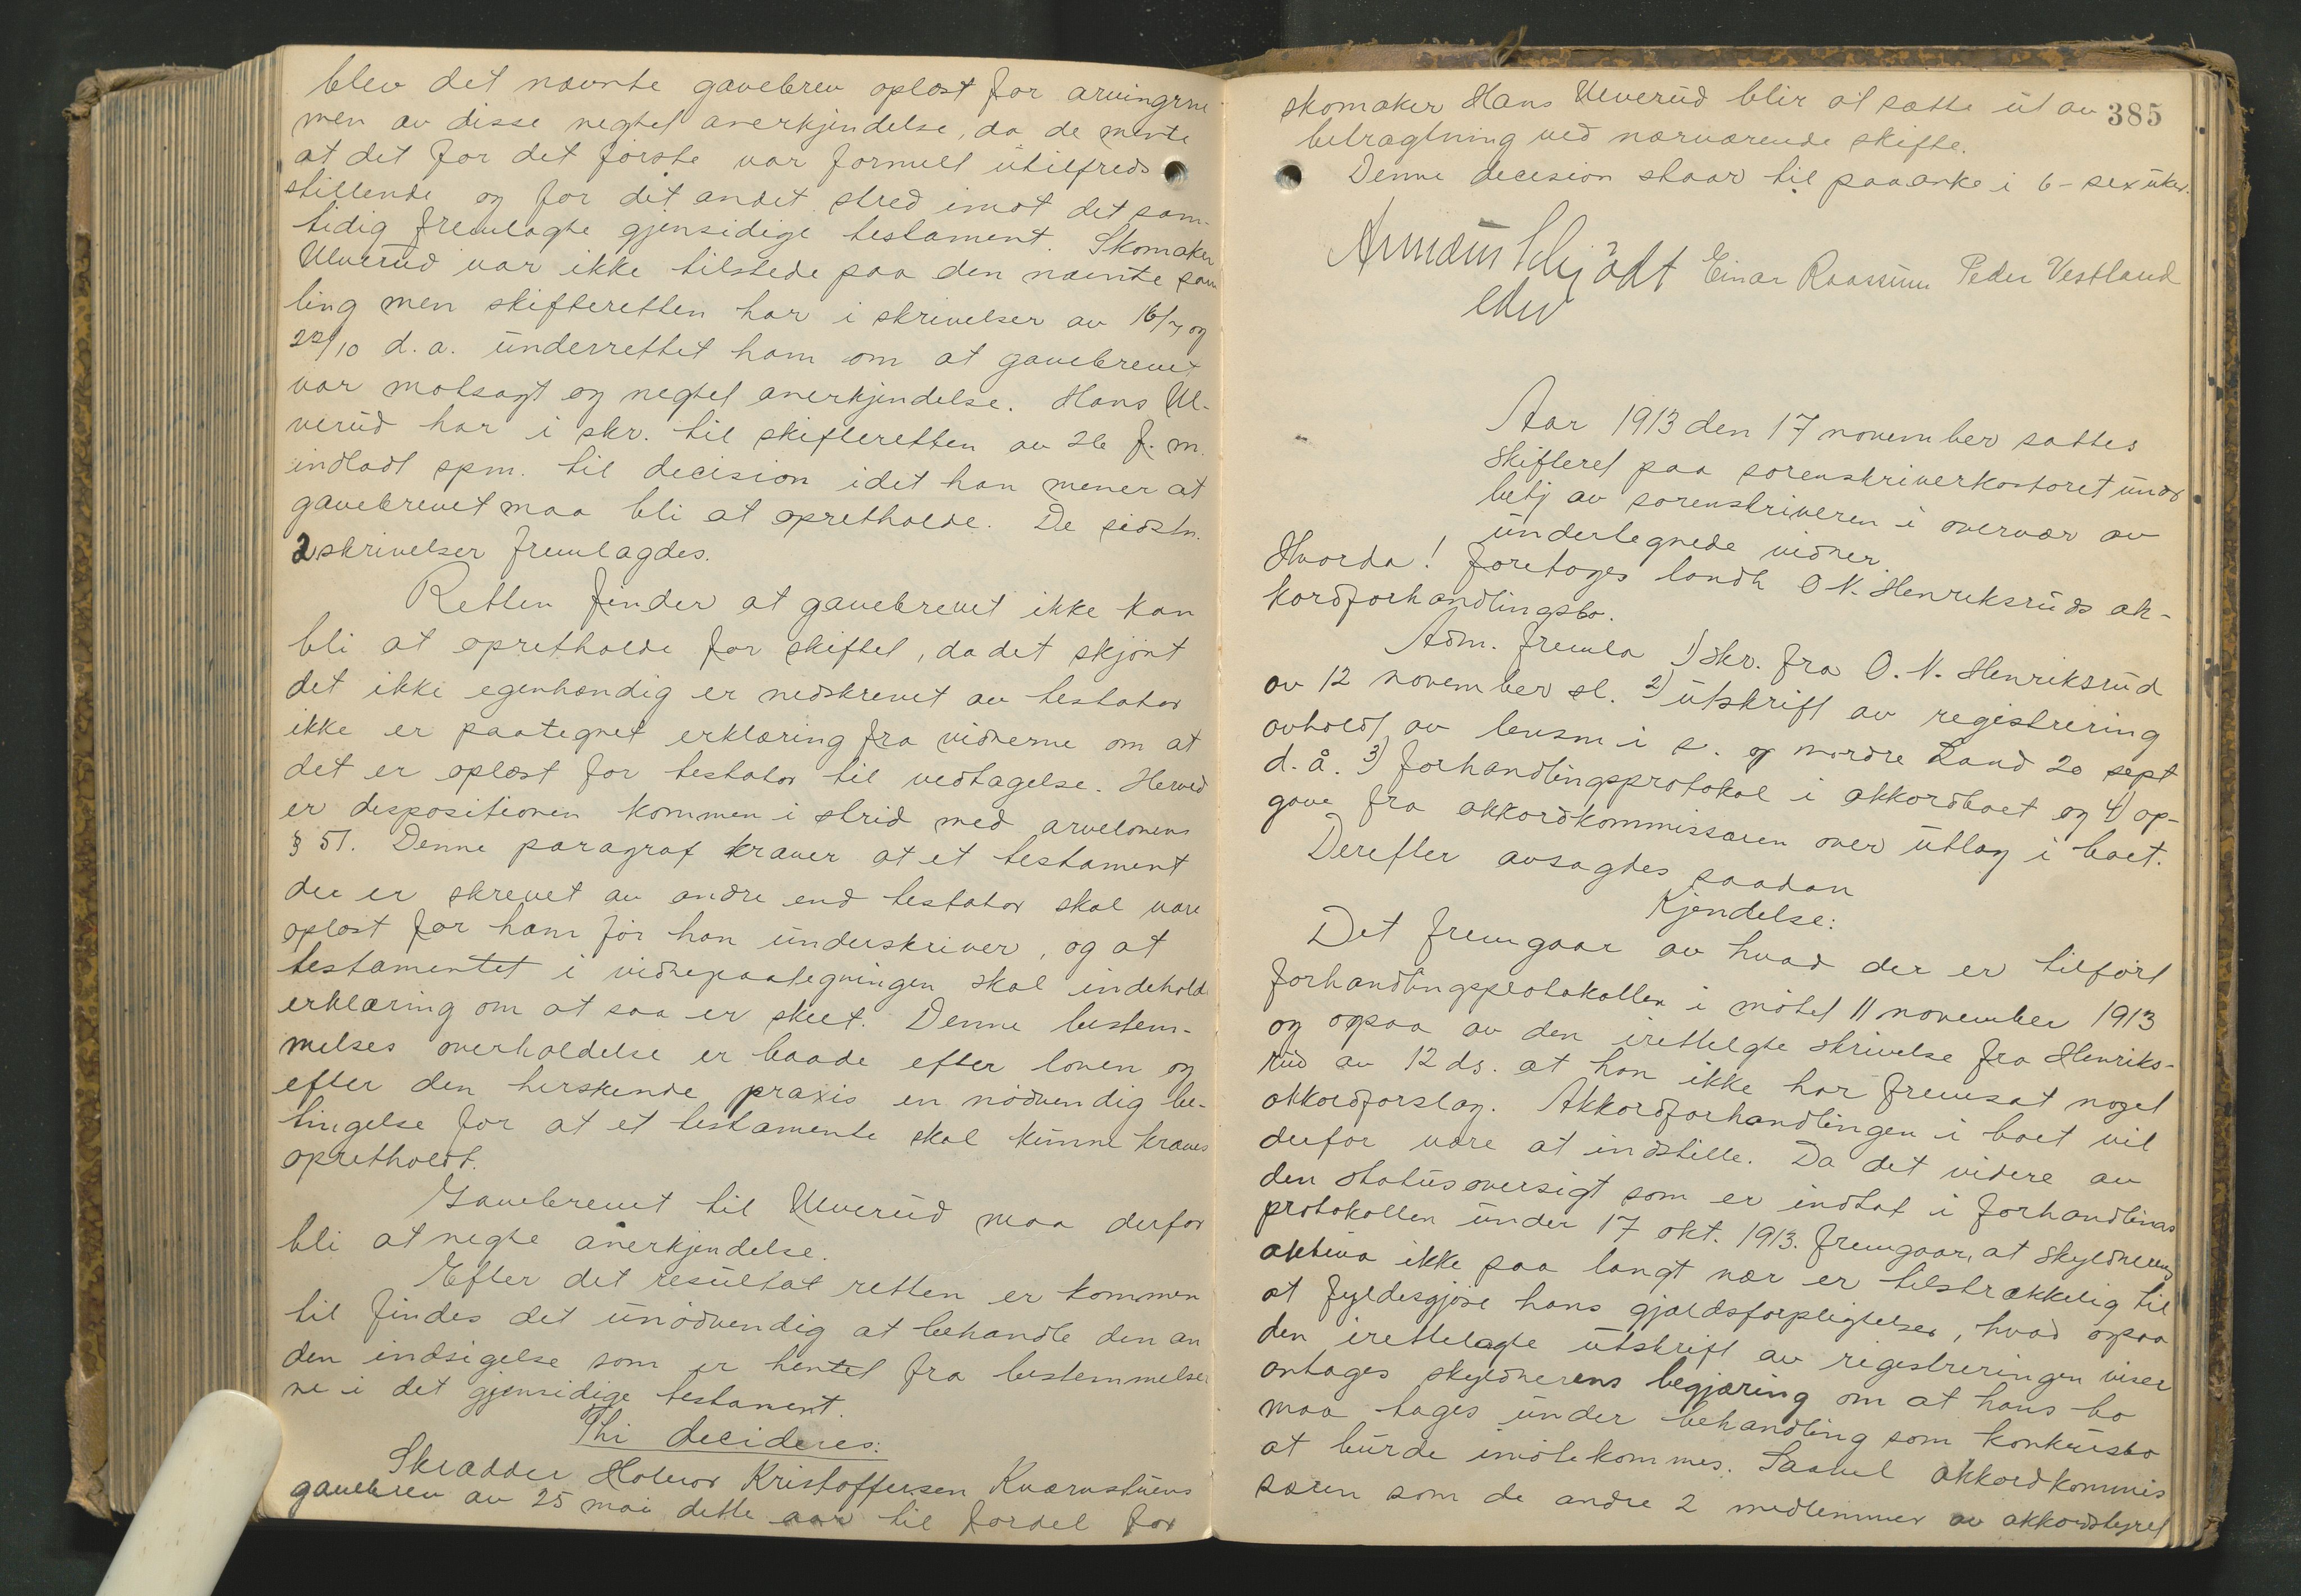 blev det nævnte gavebrev oplæst for arvingerne
men av disse negtet anerkjendelse, da de mente
at det for det første var formelt utilfreds
stillende og for det andet stred imot det sam-
tidig fremlagte gjensidige testament. Skomaker
Ulverud var ikke tilstede paa den nævnte sam
ling men skifteretten har i skrivelser av 16/7 og
22/10 d.a. underrettet ham om at gavebrevet
var motsagt og negtet anerkjendelse. Hans Ul-
verud har i skr. til skifteretten av 26 f.m.
indladt spm. til decision idet han mener at
gavebrevet maa bli at opretholde. De sidstn.
2 skrivelser fremlagdes.
Retten finder at gavebrevet ikke kan
bli at opretholde for skiftet, da det skjønt
det ikke egenhændig er nedskrevet av testator
ikke er paategnet erklæring fra vidnerne om at
det er oplæst for testator til vedtagelse. Herved
er dispositionen kommen i strid med arvelovens
§ 51. Denne paragraf kræver at et testament
der er skrevet av andre end testator skal være
oplæst for ham før han underskriver, og at
testamentet i vidnepaategningen skal indeholde
erklæring om at saa er skeet. Denne bestem-
melses overholdelse er baade efter loven og
efter den herskende praxis en nødvendig be-
tingelse for at et testamente skal kunne kræves
opretholdt.
Gavebrevet til Ulverud maa derfor
bli at negte anerkjendelse.
Efter det resultat retten er kommen
til findes det unødvendig at behandle den an
den indsigelse som er hentet fra bestemmelser
ne i det gjensidige testament.
Thi decideres:
Skrædder Halvor Kristoffersen Kværnstuens
gavebrev av 25 mai dette aar til fordel for
385
skomaker Hans Ulverud blir at sætte ut av
betragtning ved nærværende skifte.
Denne decision staar til paaanke i 6 - sex uker.
Armain Schjødt Einar Raasum Peder Vestland
edsv
Aar 1913 den 17 november sattes
skifteret paa sorenskriverkontoret under
betj av sorenskriveren i overvær av
undertegnede vidner.
Hvorda! foretoges landh O N. Henriksruds ak-
kordforhandlingsbo.
Adm. fremla 1) skr. fra O. N. Henriksrud
av 12 november sl. 2) utskrift av registrering
avholdt av lensm i s. og nordre Land 20 sept
d.å. 3) forhandlingsprotokol i akkordboet og 4) op-
gave fra akkordkommissæren over utlæg i boet.
Derefter avsagdes saadan
Kjendelse:
Det fremgaar av hvad der er tilført
forhandlingsprotokollen i møtet 11 november 1913
og ogsaa av den irettelagte skrivelse fra Henriks-
rud av 12 ds. at han ikke har fremsat noget
akkordforslag. Akkordforhandlingen i boet vil
derfor være at indstille. Da det videre av
den statusoversigt som er indtat i forhandlings
protokollen under 17 okt. 1913. fremgaar, at skyldnerens
aktiva ikke paa langt nær er tilstrækkelig til
at fyldesgjøre hans gjældsforpligtelser, hvad ogsaa
den irettelagte utskrift av registreringen viser
antages skyldnerens begjæring om at hans bo
maa tages under behandling som konkursbo
at burde imøtekommes. Saavel akkordkommis
særen som de andre 2 medlemmer av akkordstyret